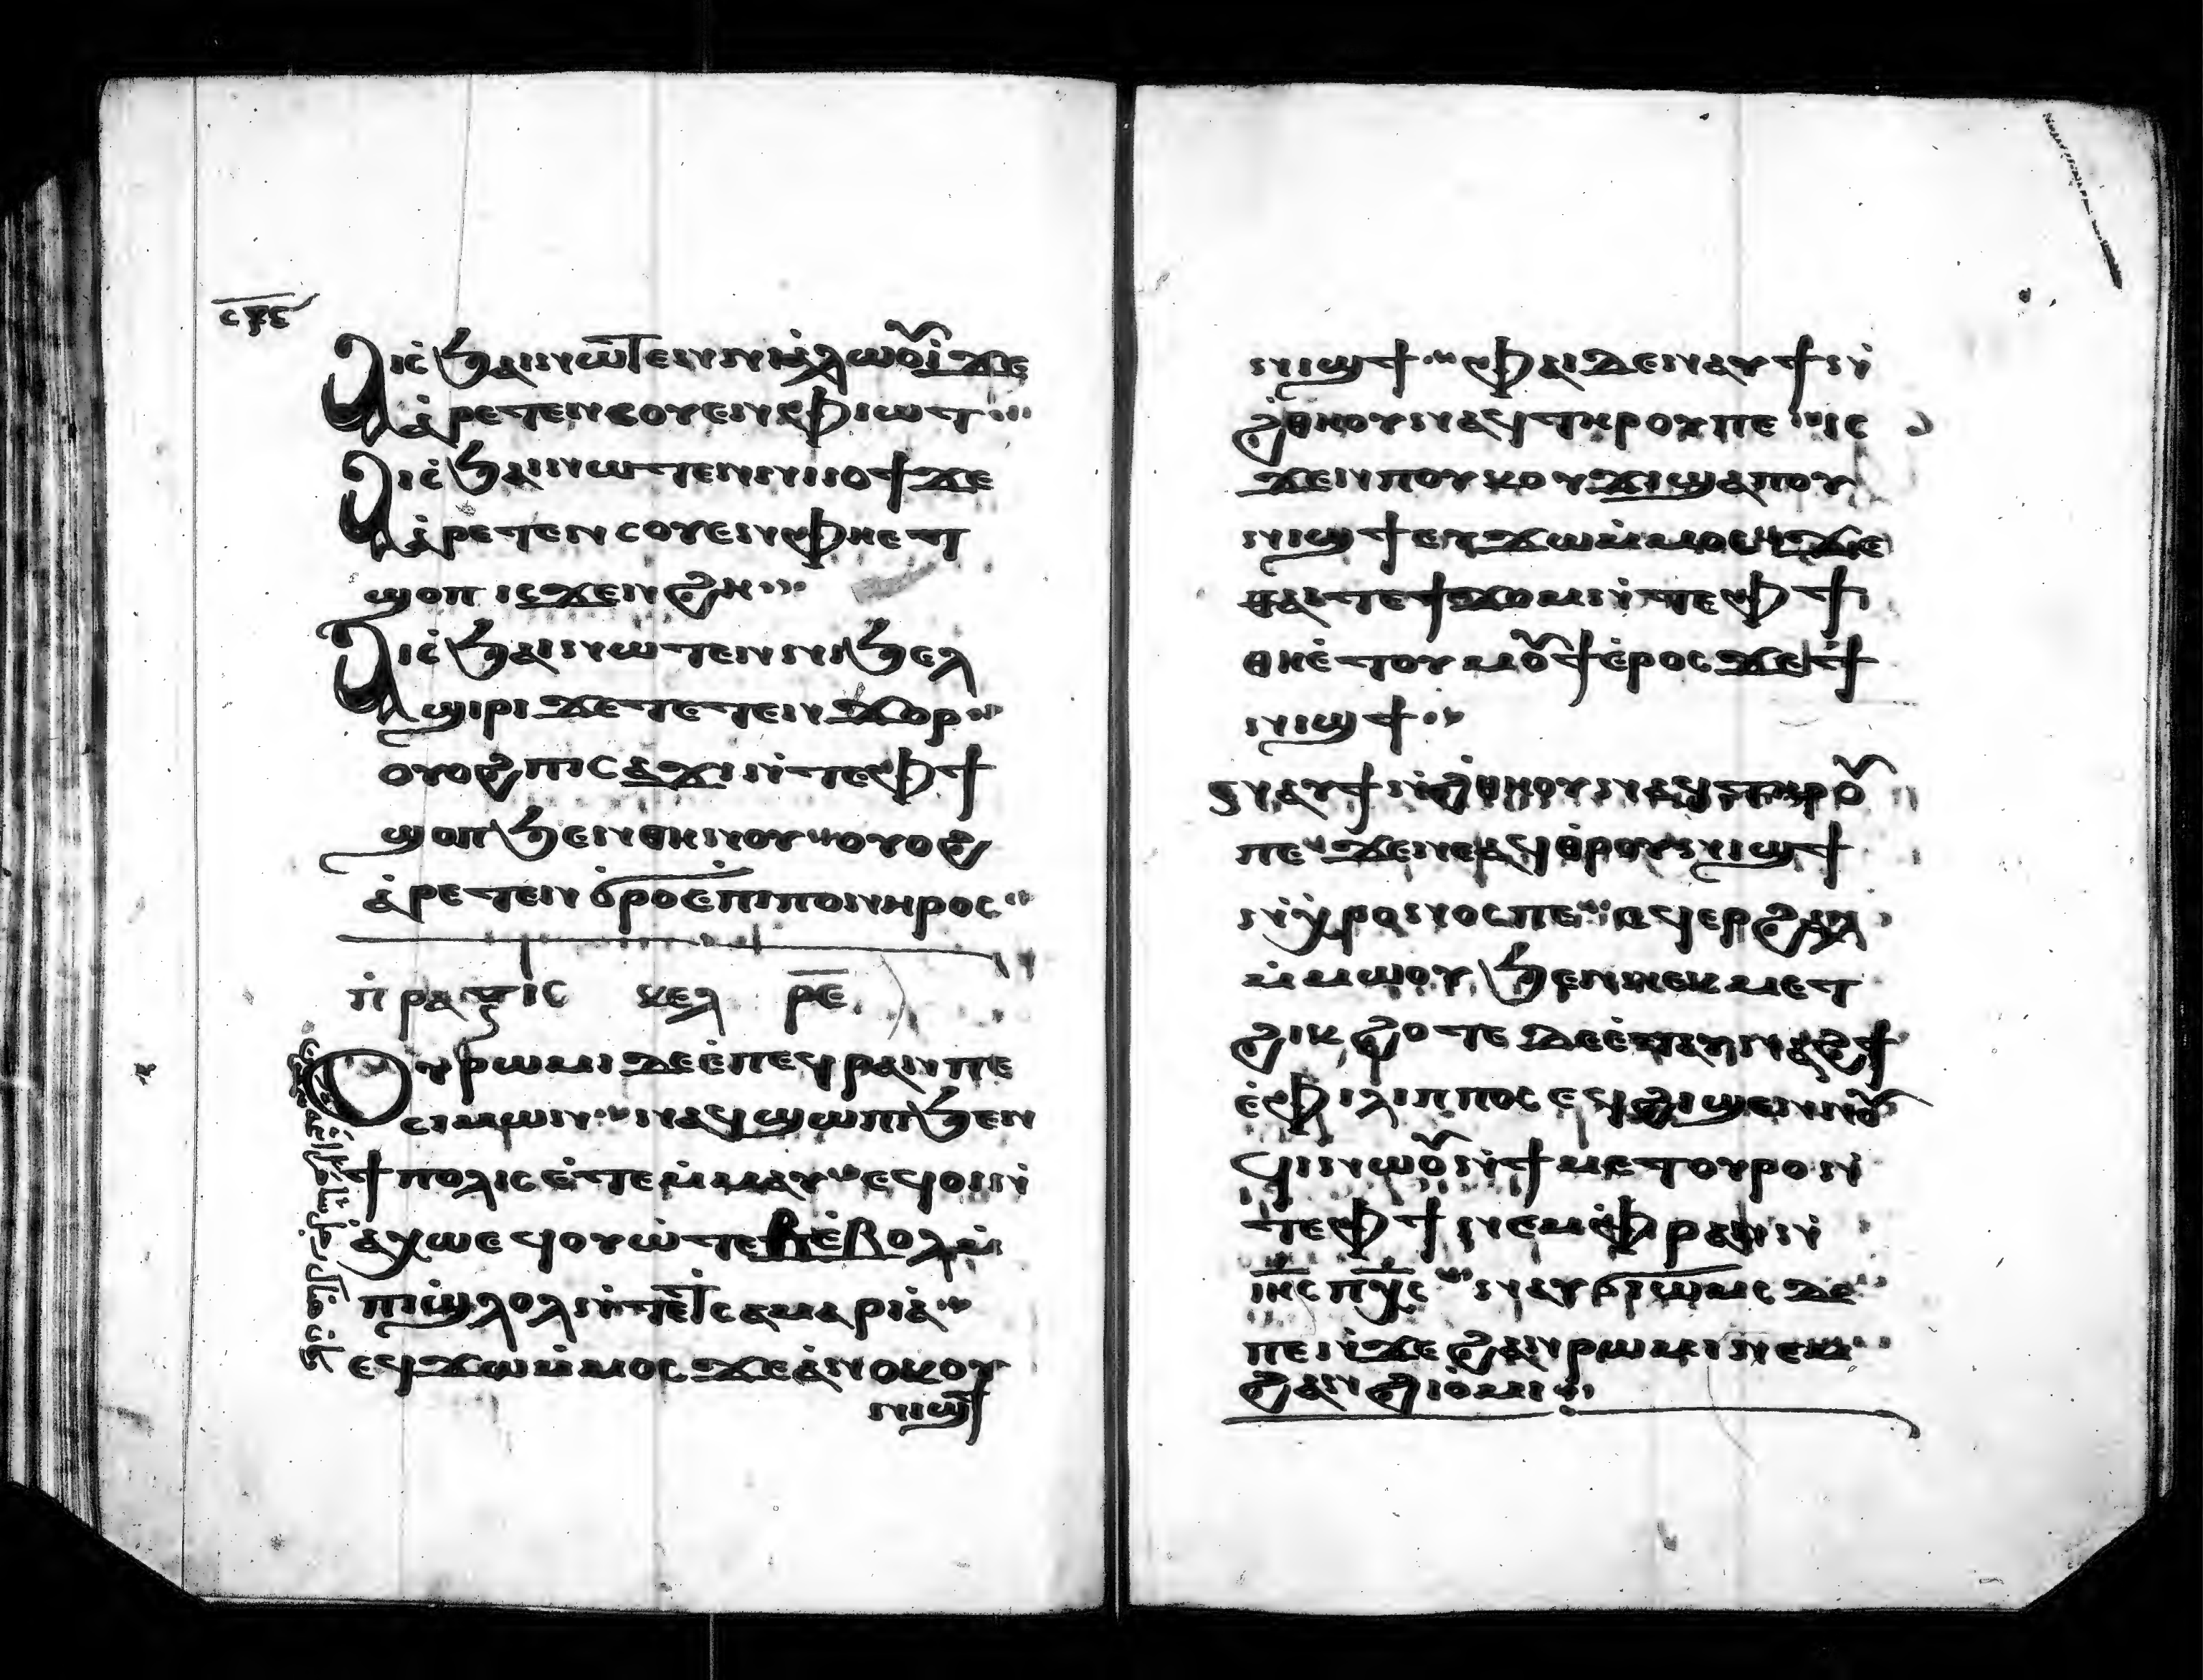 ⲥⲝⲋ
Ⲁⲓⲥϧⲁⲓⲛⲱⲧⲉⲛⲛⲓⲁ̀ⲗⲱⲟⲩⲓ̀ϫⲉ
ⲁ̀ⲣⲉⲧⲉⲛⲥⲟⲩⲉⲛⲫⲓⲱⲧ
Ⲁⲓⲥϧⲁⲓⲛⲱⲧⲉⲛⲛⲓⲓⲟϯϫⲉ
ⲁ̀ⲣⲉⲧⲉⲛⲥⲟⲩⲉⲛⲫⲏⲉⲧ
ϣⲟⲡ ⲓⲥϫⲉⲛϩⲏ
Ⲁⲓⲥϧⲁⲓⲛⲱⲧⲉⲛⲛⲓϧⲉⲗ
ϣⲓⲣⲓϫⲉⲧⲉⲧⲉⲛϫⲟⲣ
ⲟⲩⲟϩⲡⲓⲥⲁϫⲓⲛ̀ⲧⲉⲫϯ
ϣⲟⲡϧⲉⲛⲑⲏⲛⲟⲩⲟⲩⲟϩ
ⲁ̀ⲣⲉⲧⲉⲛϭⲣⲟⲉ̀ⲡⲓⲡⲟⲛⲏⲣⲟⲥ
ⲡ̀ⲣⲁⲝⲓⲥ ⲕⲉⲗ ⲣ̅ⲉ̅
Ⲟⲩⲣⲱⲙⲓⲇⲉⲉ̀ⲡⲉϥⲣⲁⲛⲡⲉ
ⲥⲓⲙⲱⲛⲛⲁϥϣⲱⲡⲓϧⲉⲛ
ϯⲡⲟⲗⲓⲥⲉ̀ⲧⲉⲙ̀ⲙⲁⲩⲉϥⲟⲓⲛ̀
ⲁ̀ⲭⲱⲉϥⲟⲩⲱ̀ⲧⲉⲃⲉ̀ⲃⲟⲗⲙ̀
ⲡⲓϣⲗⲟⲗⲛ̀ⲧⲉϯⲥⲁⲙⲁⲣⲓⲁ̀
ⲉϥϫⲱⲙ̀ⲙⲟⲥϫⲉⲁ̀ⲛⲟⲕⲟⲩ
ⲛⲓϣϯ
ⲛⲓϣϯⲫⲁⲓⲇⲉⲛⲁⲩϯⲛ̀
ϩⲑⲏⲟⲩⲛⲁϥⲧⲏⲣⲟⲩⲡⲉⲓⲥ
ϫⲉⲛⲡⲟⲩⲕⲟⲩϫⲓϣⲁⲡⲟⲩ
ⲛⲓϣϯⲉⲩϫⲱⲙ̀ⲙⲟⲥϫⲉ
ⲑⲁⲓⲧⲉϯϫⲟⲙⲛ̀ⲧⲉⲫϯ
ⲑⲏⲉ̀ⲧⲟⲩⲙⲟⲩϯⲉ̀ⲣⲟⲥϫⲉϯ
ⲛⲓϣϯ
ⲛⲁⲩϯⲛ̀ϩⲑⲏⲟⲩⲛⲁϥⲧⲏⲣⲟⲩ
ⲡⲉϫⲉⲛⲉⲁϥⲑ̀ⲣⲟⲩⲛⲓϣϯ
ⲛ̀ⲭⲣⲟⲛⲟⲥⲡⲉⲁϥⲉⲣϩⲁⲗ
ⲙ̀ⲙⲱⲟⲩϧⲉⲛⲛⲉϥⲙⲉⲧ
ϩⲓⲕϩⲟⲧⲉⲇⲉⲉ̀ⲧⲁⲩⲛⲁϩϯ
ⲉ̀ⲫⲓⲗⲓⲡⲡⲟⲥⲉϥϩⲓϣⲉⲛⲛⲟⲩ
ϥⲓⲛⲱⲟⲩⲛ̀ϯⲙⲉⲧⲟⲩⲣⲟⲛ̀
ⲧⲉⲫϯⲛⲉⲙⲫ̀ⲣⲁⲛⲛ̀
ⲓⲏⲥⲡⲭⲥⲛⲁⲩϭⲓⲱⲙⲥⲇⲉ
ⲡⲉⲛ̀ϫⲉϩⲁⲛⲣⲱⲙⲓⲛⲉⲙ
ϩⲁⲛϩⲓⲟ̀ⲙⲓ